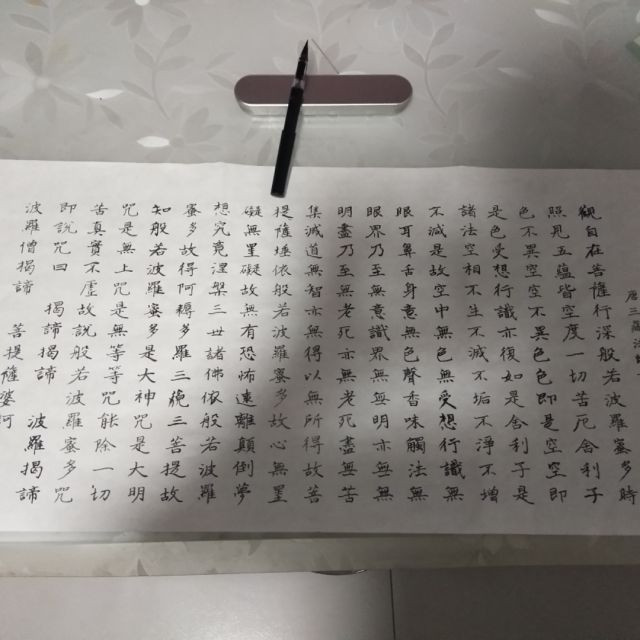 唐三藏法
觀自在菩薩行深般若波羅蜜多時
照見五蘊皆空度一切苦厄舍利子
色不異空空不異色色即是空空即
是色受想行識亦復如是舍利子是
諸法空相不生不滅不垢不淨不增
不減是故空中無色無受想行識無
眼耳鼻舌身意無色聲香味觸法無
眼界乃至無意識界無無明亦無無
明盡乃至無老死亦無老死盡無苦
集滅道無智亦無得以無所得故菩
提薩埵依般若波羅蜜多故心無罣
礙無罣礙故無有恐怖遠離顛倒夢
想究竟涅槃三世諸佛依般若波羅
蜜多故得阿耨多羅三藐三菩提故
知般若波羅蜜多是大神咒是大明
咒是無上咒是無等等咒能除一切
苦真實不虛故說般若波羅蜜多咒
即說咒曰 揭諦揭諦 波羅揭諦
波羅僧揭諦 菩提薩婆訶